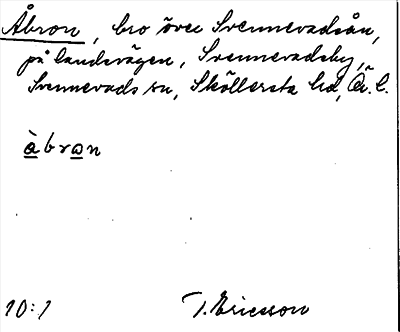 Åbron, bro över Svennevadsån,
på landsvägen, Svennevadsby,
Svennevads sn, Sköllersta hd, Ä. l.
àbron
10:1 T. Ericsson